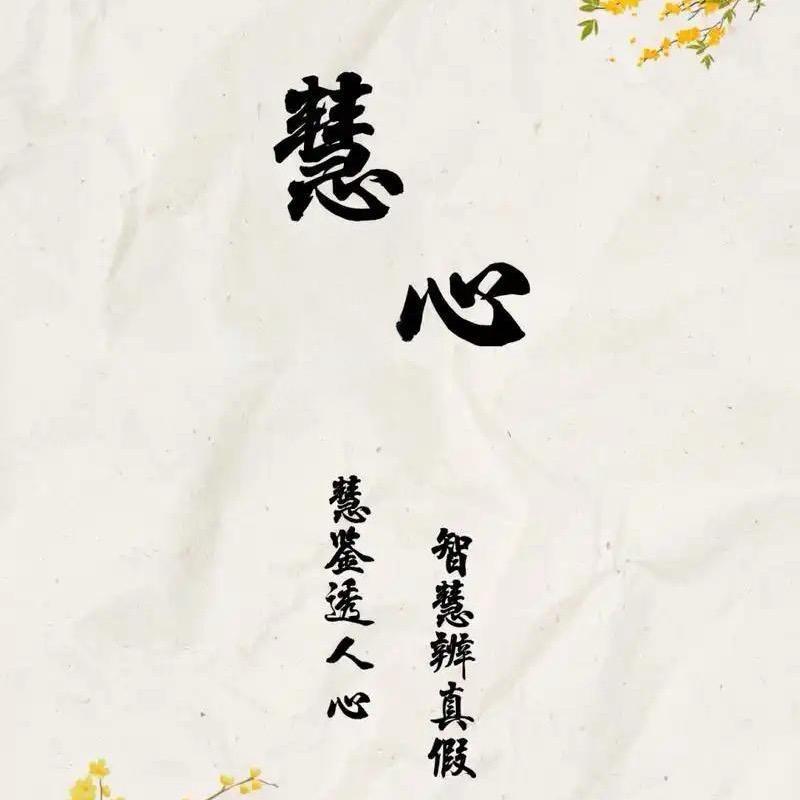 慧心
慧鉴透人心
智慧辨真假